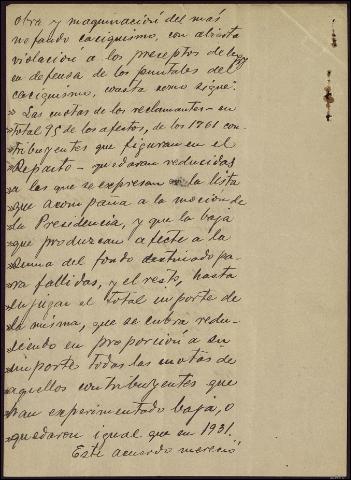 obra y maquinación del más
nefando caciquismo, con abierta
violación a los preceptos de ley
en defensa de los puntales del
caciquismo, consta como sigue.
» Las cuotas de los reclamantes - en
» total 95 de los afectos, de los 1761 con-
» tribuyentes que figuran en el
» Reparto - quedaran reducidas
» a las que se expresan en la lista
» que acompaña a la moción de
» la Presidencia, y que la baja
» que produzcan afecte a la
» suma del fondo destinado pa-
» ra fallidas, y el resto, hasta
» enjugar el total importe de
» la misma, que se cubra redu-
» ciendo en proporción a su
» importe todas las cuotas de
» aquellos contribuyentes que
» han experimentado baja, o
» quedaron igual que en 1931.
Este acuerdo mereció